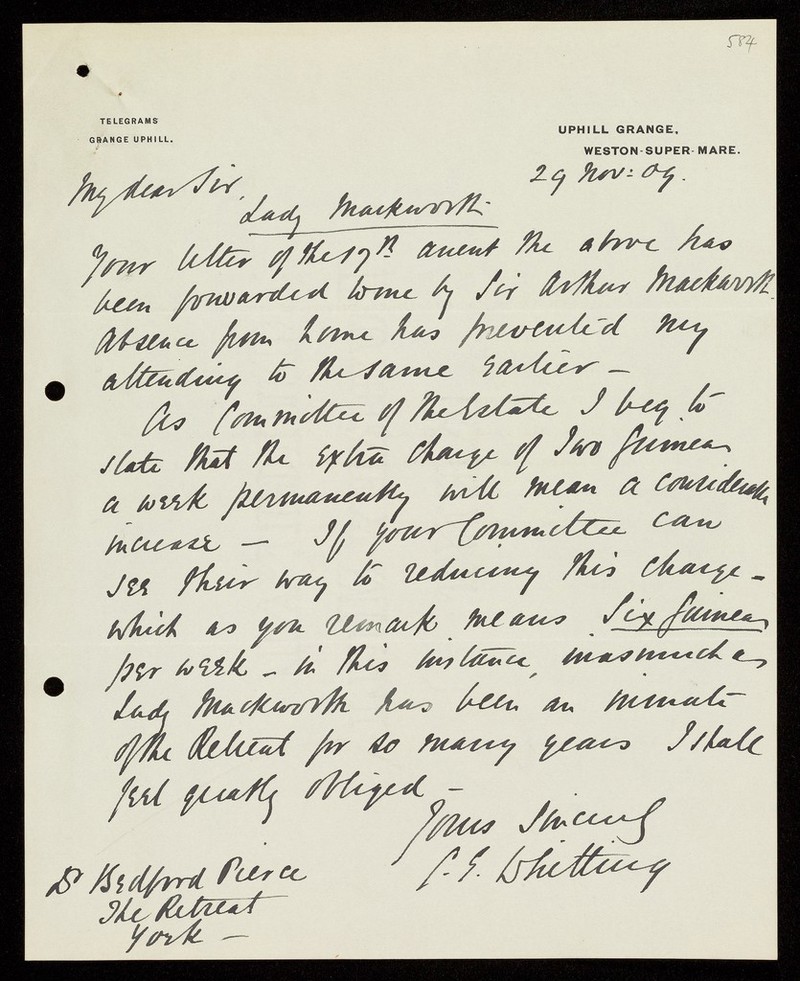 584
TELEGRAMS
GRANGE UPHILL.
UPHILL GRANGE,
WESTON-SUPER-MARE.
29 Nov: 09.
My dear Sir,
Lady Mackworth
Your letter of the 17th anent the above has
been forwarded to me by Sir Arthur Mackworth.
Absence from home has prevented my
attending to the same earlier –
As Committee of the Estate I beg to
state that the extra charge of Two Guineas
a week permanently will mean a considerable
increase – If your Committee can
see their way to reducing this charge –
which as you remark means Six Guineas
per week – in this instance, inasmuch as
Lady Mackworth has been an inmate
of the Retreat for so many years I shall
feel greatly obliged –
Yours Sincerely
C. E. Whitting
Dr Bedford Pierce
The Retreat
York –